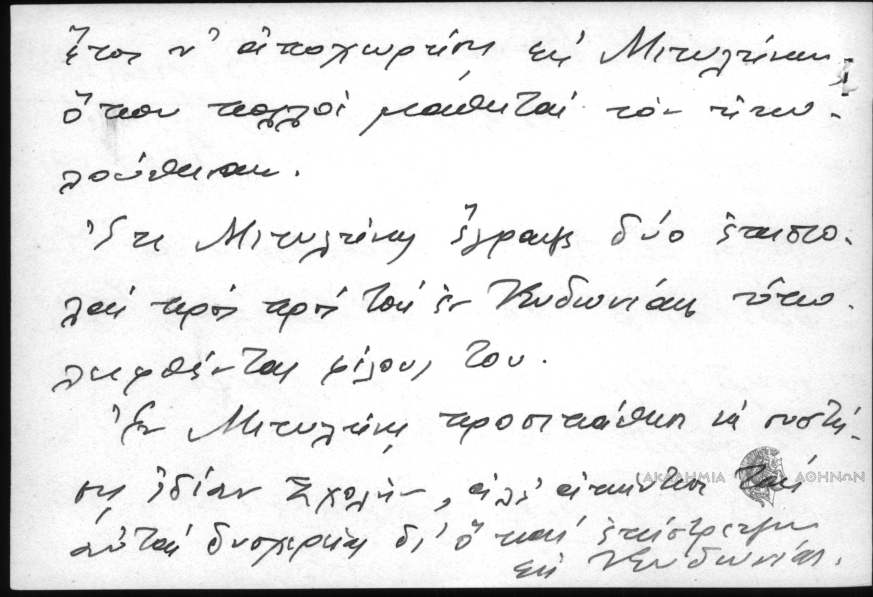 ἔτσι ν' ἀποχωρήση εἰς Μιτυλήνην
ὅπου πολλοὶ μαθηταὶ τὸν ἠκο-
λούθησαν.
Ἐκ Μιτυλήνης ἔγραψε δύο ἐπιστο-
λὰς πρὸς πρὸς τοὺς ἐν Κυδωνίαις ὑπο-
λειφθέντας φίλους του.
Ἐν Μιτυλήνῃ προσεπάθησε νὰ συστή-
σῃ ἰδίαν Σχολήν, ἀλλ' ἀπήντησε τὰς
αὐτὰς δυσχερείας δι' ὃ καὶ ἐπέστρεψεν
εἰς Κυδωνίας.
ΑΚΑΔΗΜΙΑ ΑΘΗΝΩΝ